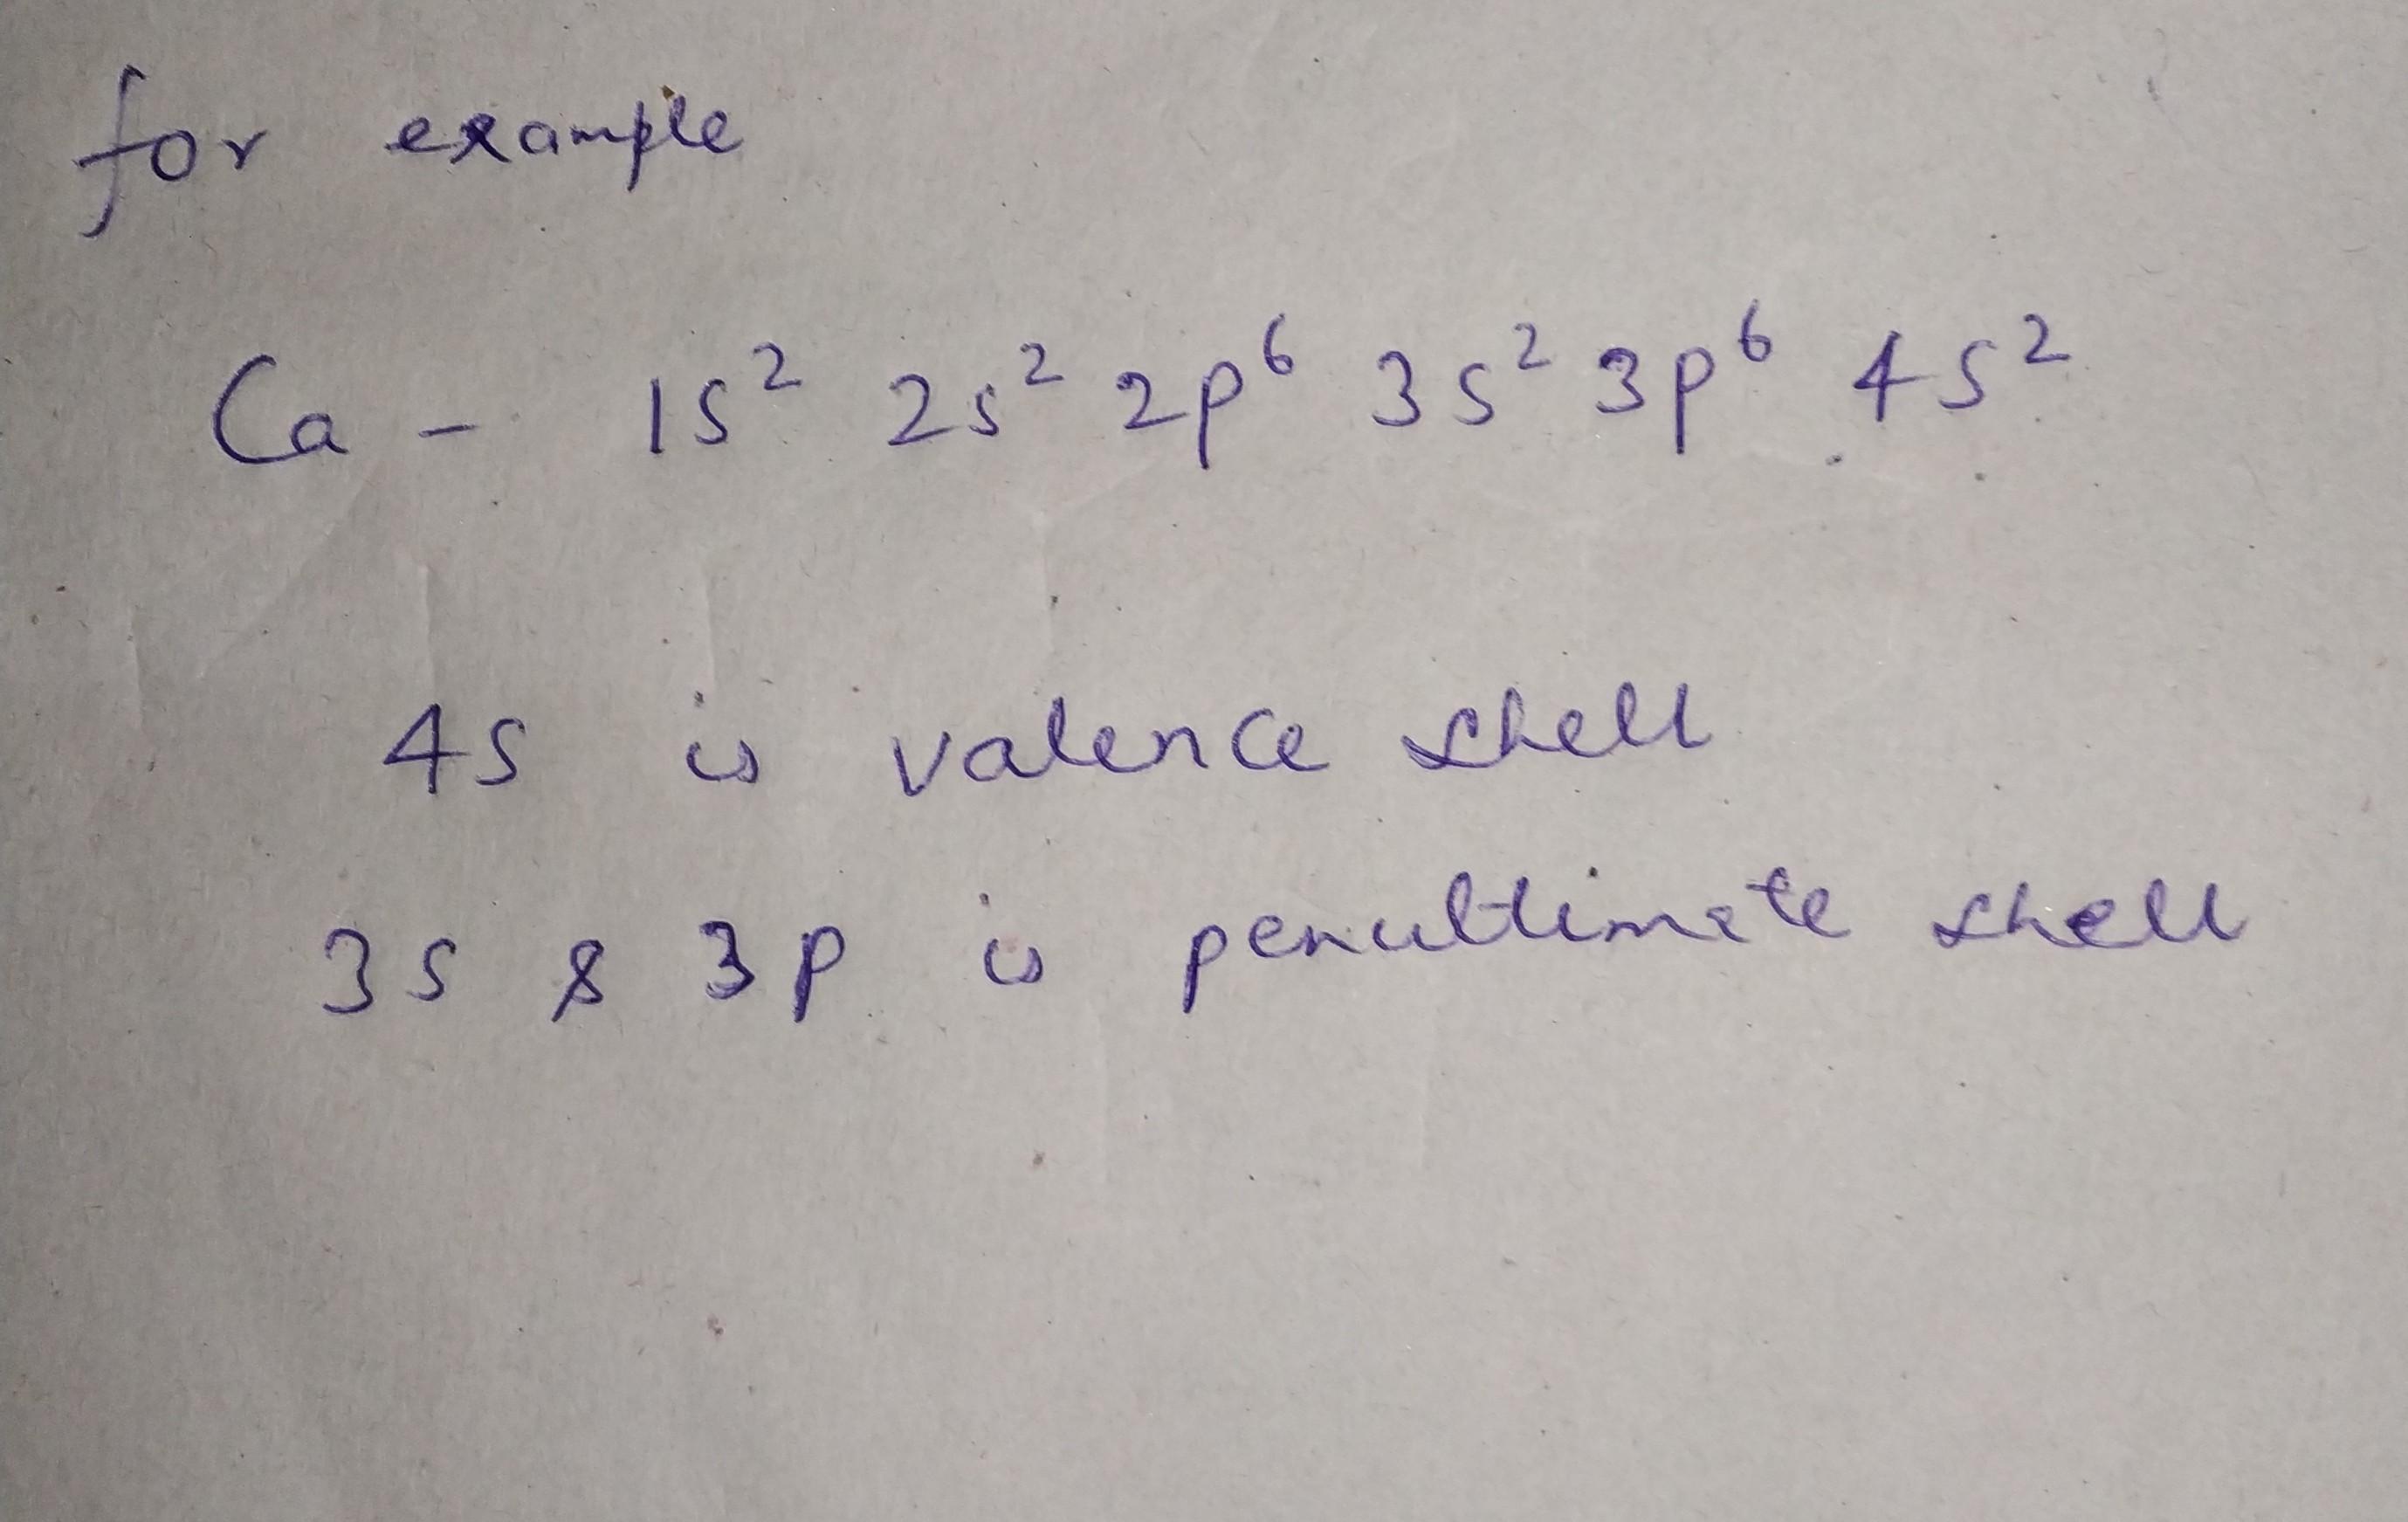 for example
Ca - 1s² 2s² 2p⁶ 3s² 3p⁶ 4s²
4s is valence shell
3s & 3p is penultimate shell